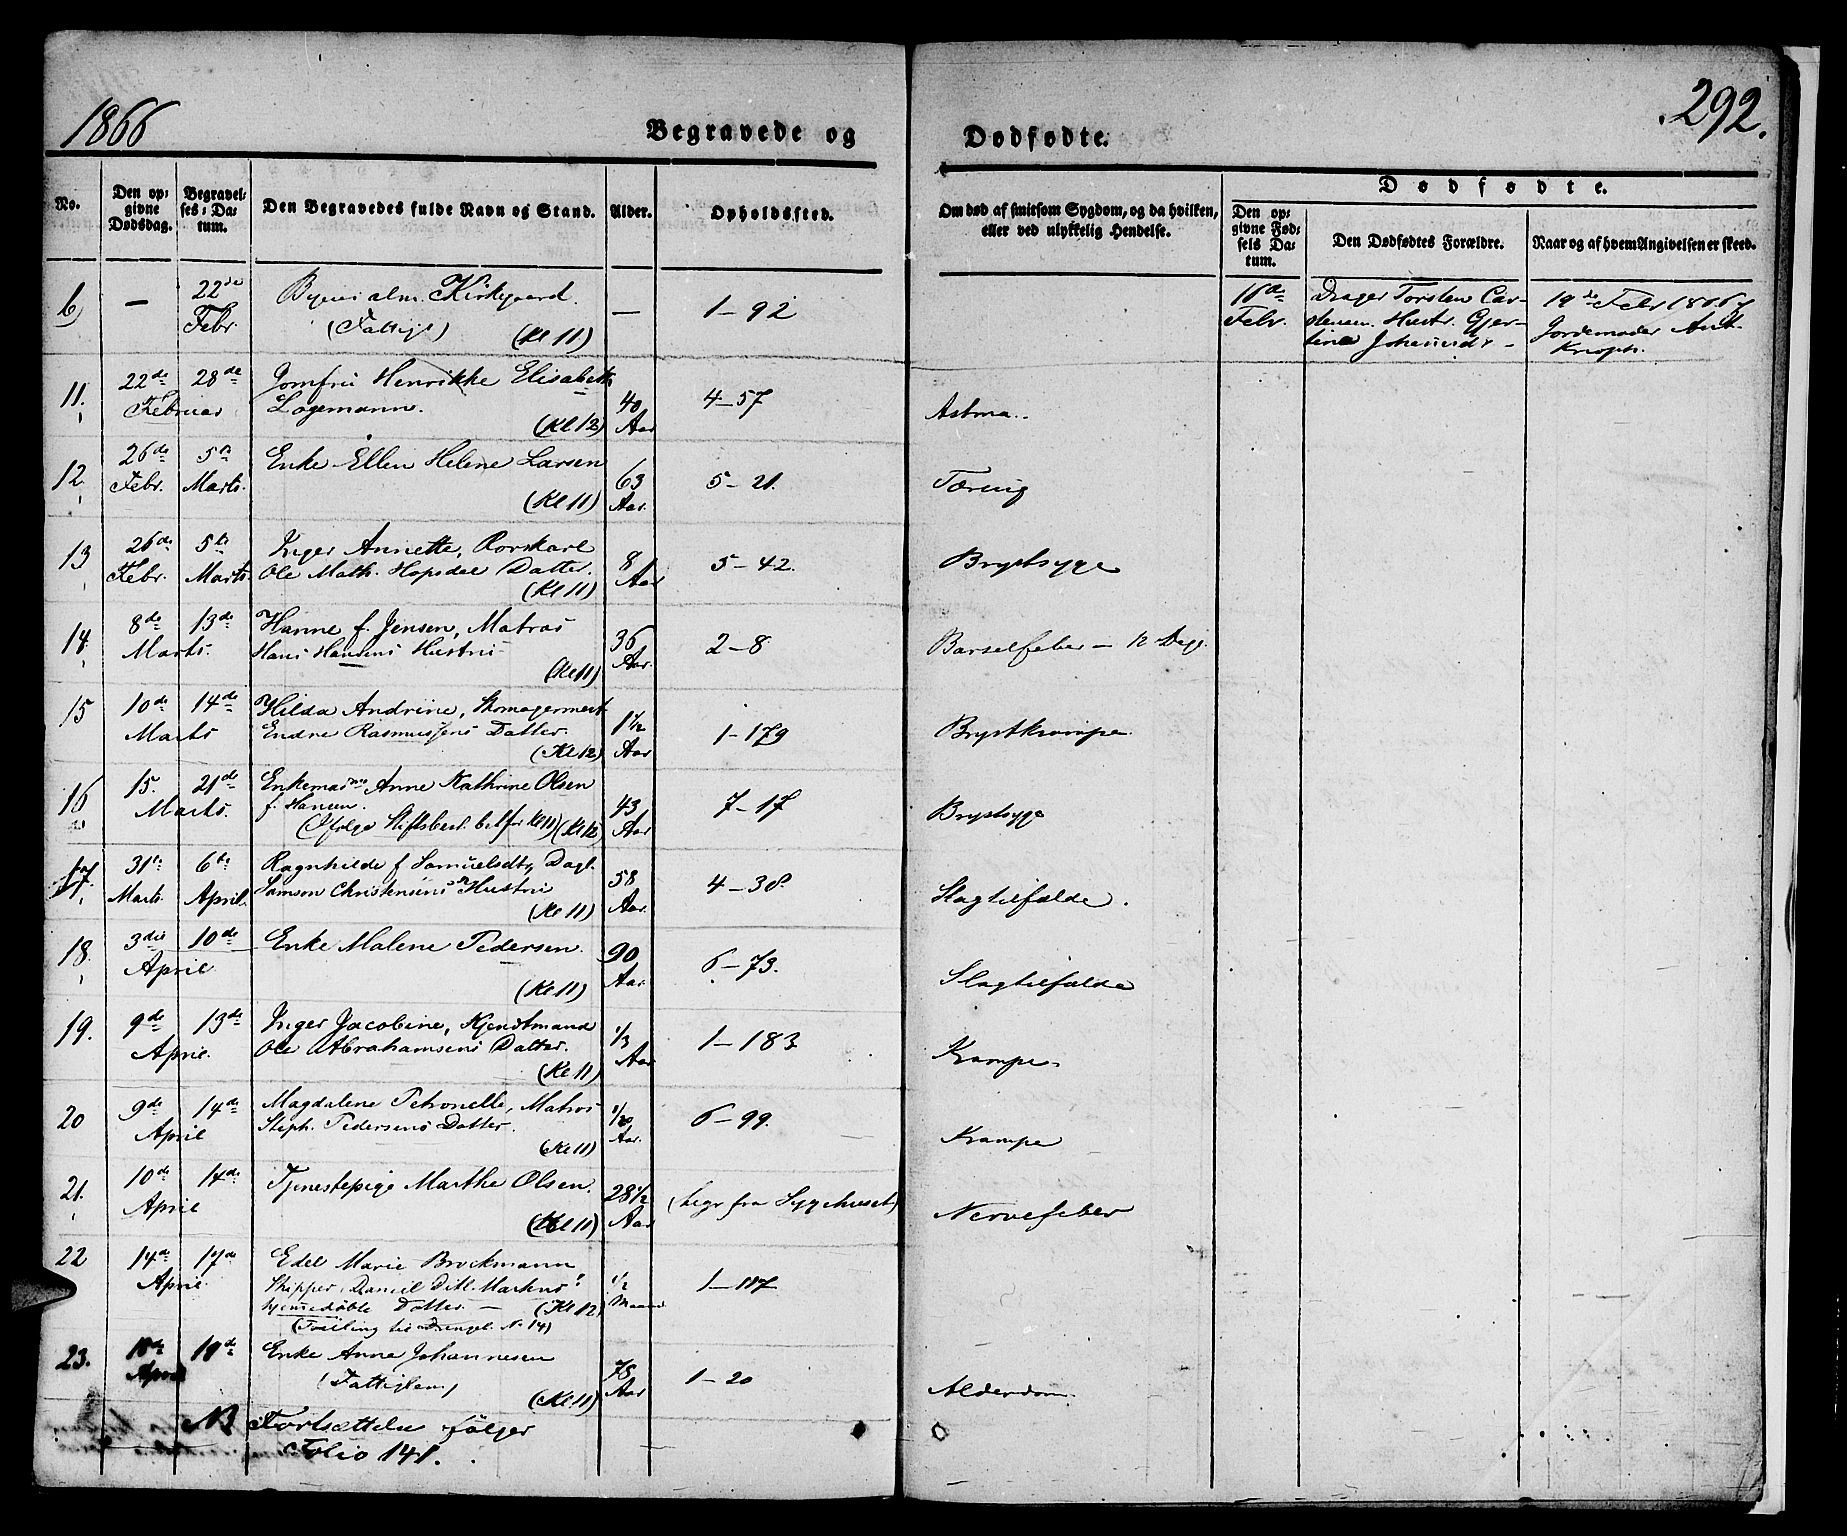 1866
Begravede og
Dødfødte.
.292.
No.
Den op-
givne
Dødsdag.
Begravel-
ses-Da-
tum.
Den Begravedes fulde Navn og Stand.
Alder.
Opholdssted.
Om død af smitsom Sygdom, og da hvilken,
eller ved ulykkelig Hendelse.
Dødfødte.
Den op-
givne Fød-
sels Da-
tum.
Den Dødfødtes Forældre.
Naar og af hvem Angivelsen er skeed.
6) — 22de Febr. Byens alm. Kirkegaard.
(Fattigl)
(Kl 11)
— 1-92
Febr. Drager Torsten Car-
stensen. Hustr. Gjer-
tine
19de Febr 1866
Jordemoder
11. 22de 28de Jomfru Henrikke Elisabeth
Februar Logemann.
(Kl 12)
40 Aar 4-57 Astma.
12. 26de Febr. 5te Marts. Enke Ellen Helene Larsen
(Kl 11)
63 Aar. 5-21. Tæring
13 26de Febr. 5te Marts. Inger Annette, Rorskarl
Ole Math. Hopsdal Datter.
(Kl 11)
8 Aar 5-42. Brystsyge
14. 8de 13de Marts. Hanne f. Jensen, Matros
Hans Hansens Hustru
(Kl 11)
36 Aar. 2-8. Barselfeber — 12 Dage.
15 10de 14de Marts Hilda Andrine, Skomagermest
Endre Rasmussens Datter.
(Kl 12)
1 1/2 Aar 1-179 Brystkrampe.
16 15. 21de Marts. Enkemadme Anne Kathrine Olsen
f. Hansen.
(Ifølge Stiftsbest. bet for Kl 11) (Kl 12)
43 Aar 7-17 Brystsyge
17. 31te Marts. 6te April. Ragnhilde f Samuelsdtr, Dagl.
Samson Christensens Hustru
(Kl 11)
58 Aar. 4-38. Slagtilfælde.
18. 3die 10de April Enke Malene Pedersen.
(Kl 11)
90 Aar. 6-73. Slagtilfælde
19. 9de 13de April. Inger Jacobine, Kjendtmand
Ole Abrahamsens Datter.
(Kl 11)
1/3 Aar 1-183 Krampe.
20 9de 14de April Magdalene Petronelle, Matros
Steph. Pedersens Datter.
(Kl 11)
1/20 Aar. 6-99. Krampe
21. 10de 14de April Tjenestepige Marthe Olsen.
(Kl 11)
28 1/2 Aar (begr fra Sygehuset) Nervefeber
22 14de 17de April. Edel Marie Brockmann
Skipper, Daniel Ditl. Martens
hjemmedøbte Datter — (Kl 12)
(Tvilling til Drengeb. No 14)
1/2 Maaned 1-117
23. 18de April 19de Enke Anne Johannesen
(Fattiglem)
(Kl 11)
78 Aar 1-20 Alderdom.
NB Fortsættelse følger
Folio 141.